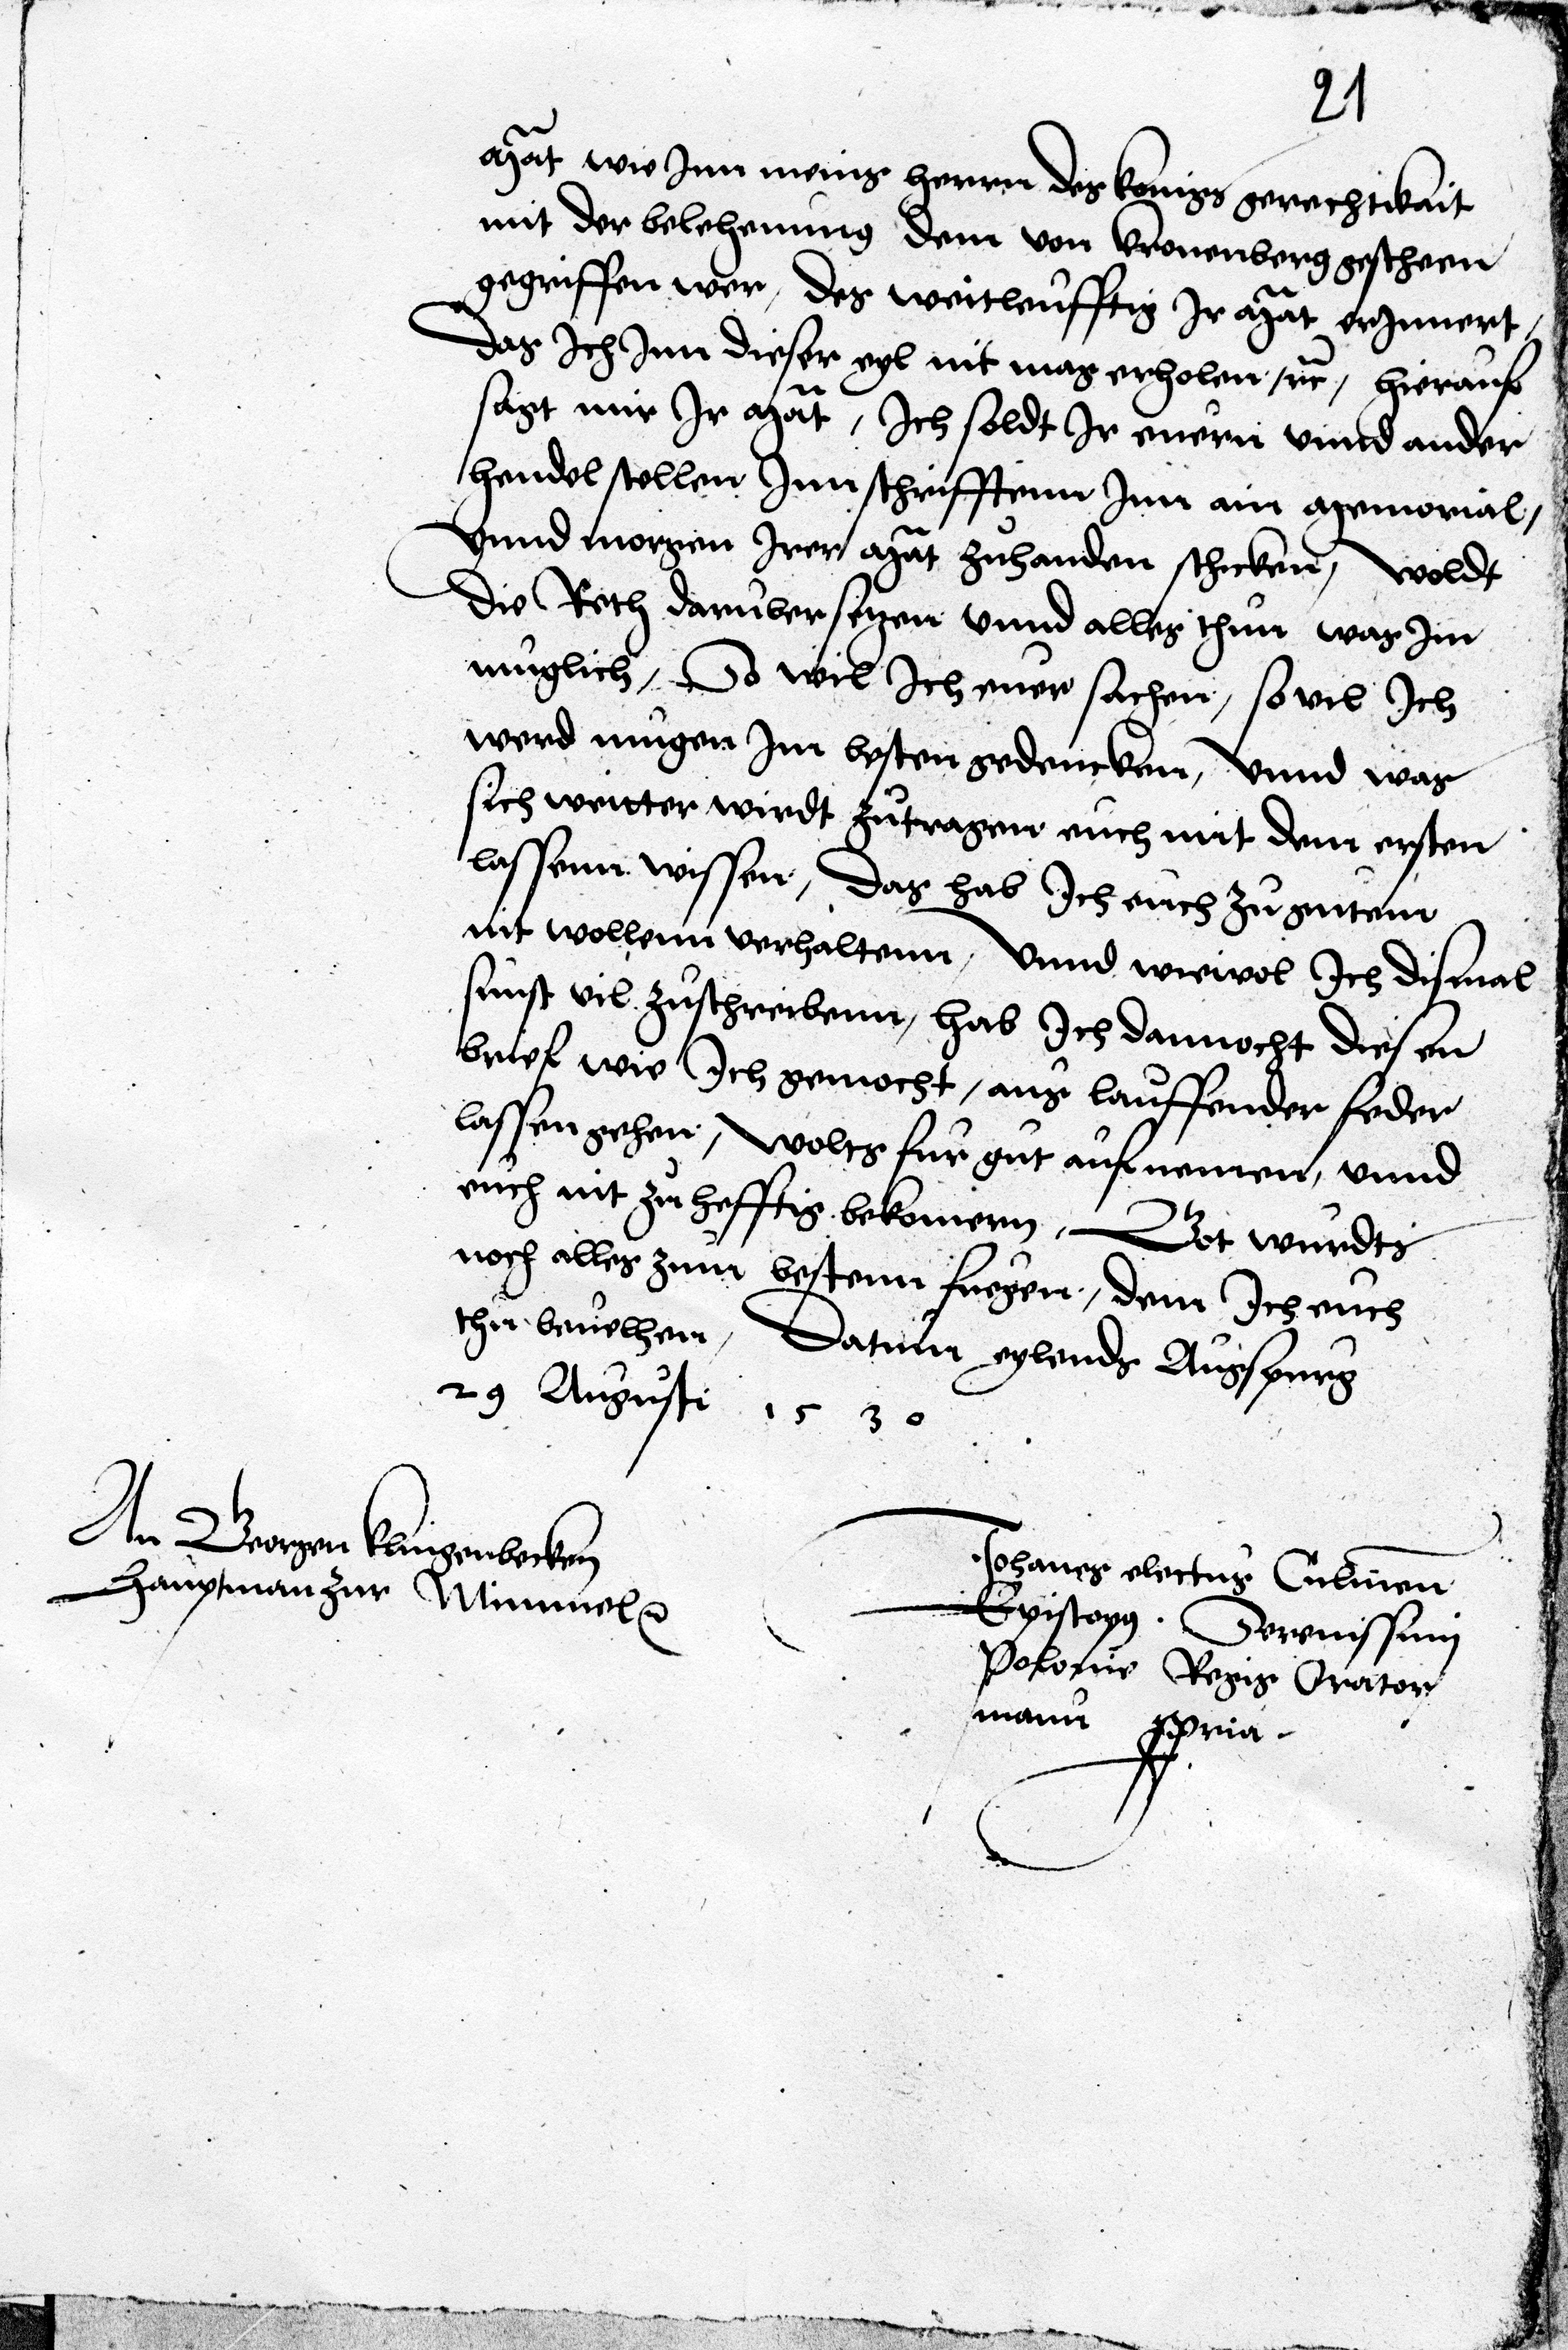 21
Mät wie Inn meins herrn des konigs gerechtikait
mit der belehenung dem von Kronenberg gescheen
gegriffen wer, des weitleufftig Ir Mät erInnert,
das Ich Inn dieser eyl nit mag erholen, rc, hierauf
sagt mir Ir Mät, Ich soldt Ir euern vnnd ander
hendel stellen Inn schrifftenn Inn ain Memorial,
Vnnd morgen Irer Mät zuhanden schicken, woldt
die Reth daruber setzen vnnd alles thun was Im
muglich, So wil Ich euer sachen, so vil Ich
werd mugen Im besten gedencken, Vnnd was
sich weitter wirdt zutragen euch mit dem ersten
lassenn wissen, Das hab Ich euch zu gutem
nit wollenn verhaltenn, Vnnd wiewol Ich dismal
sunst vil zuschreibenn, hab Ich dannocht diesen
brief wie Ich gemocht, aus lauffender feder
lassen gehen, Wolts fur gut aufnemen, vnnd
euch nit zu hefftig bekomern, Got wurdts
noch alles zum bestenn fuegen, dem Ich euch
thu beuelhen, Datum eylends Augspurg
29 Augusti 1530
An Georgen Klingenbecken
Hauptman zur Mimmel
Johanes electus Culmen
Episcopus. Serenissimi
Polonie Regis Orator
manu ppria.